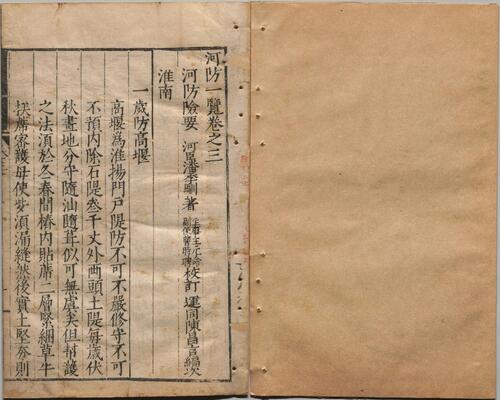 河防一覽卷之三
河防險要 潘季馴著 校訂 運同陳昌言編次
淮南
一歲防高堰
高堰為淮揚門戶隄防不可不嚴修守不可
不預內除石隄叁千丈外兩頭土隄每歲伏
秋畫地分守隨汕隨葺似可無虞矣但幫護
之法須於冬春間樁內貼蓆二層緊綑草牛
挨蓆密護毋使些須漏縫然後實土堅夯則